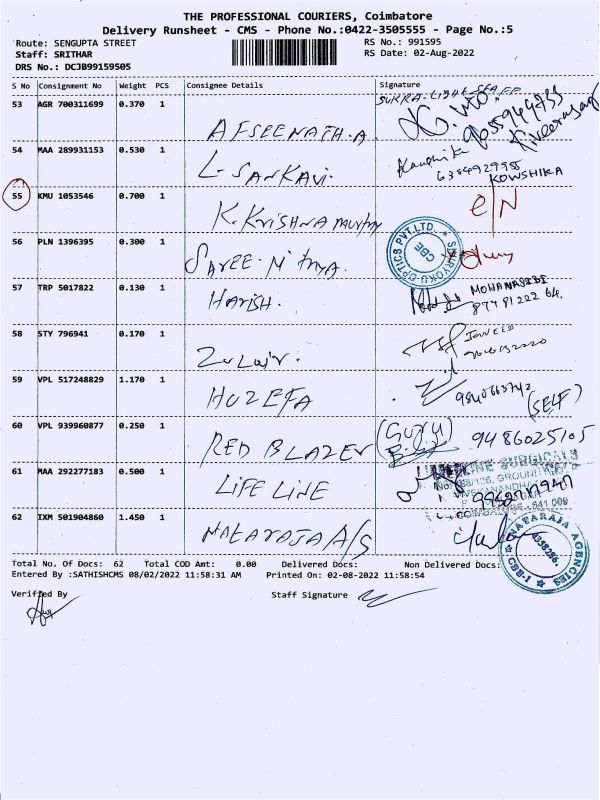 THE PROFESSIONAL COURIERS, Coimbatore
Delivery Runsheet - CMS - Phone No.:0422-3505555 - Page No.:5
Route: SENGUPTA STREET
RS No.: 991595
Staff: SRITHAR
RS Date: 02-Aug-2022
DRS No.: DCJB99159505
S No Consignment No Weight PCS Consignee Details Signature
SUKRA-LIGHT STAFF
53 AGR 700311699 0.370 1 AFSEENATH.A.
54 MAA 289931153 0.530 1 L. SANKAVI.
6384929955
KOWSHIKA
55 KMU 1053546 0.700 1 K. KRISHNA MURTHY
56 PLN 1396395 0.300 1
SHARYOKU OPTICS PVT.LTD. CBE
57 TRP 5017822 0.130 1 HARISH.
58 STY 796941 0.170 1 ZULAIR.
59 VPL 517248829 1.170 1 HUZEFA
(SELF)
60 VPL 939960877 0.250 1 RED BLAZER (GURU) 9486025105
61 MAA 292277183 0.500 1 LIFE LINE
LIFE LINE SURGICALS
62 IXM 501904860 1.450 1 NATARAJA A/S
NATARAJA AGENCIES CBE-1
Total No. Of Docs: 62 Total COD Amt: 0.00 Delivered Docs: Non Delivered Docs:
Entered By :SATHISHCMS 08/02/2022 11:58:31 AM Printed On: 02-08-2022 11:58:54
Verified By Staff Signature